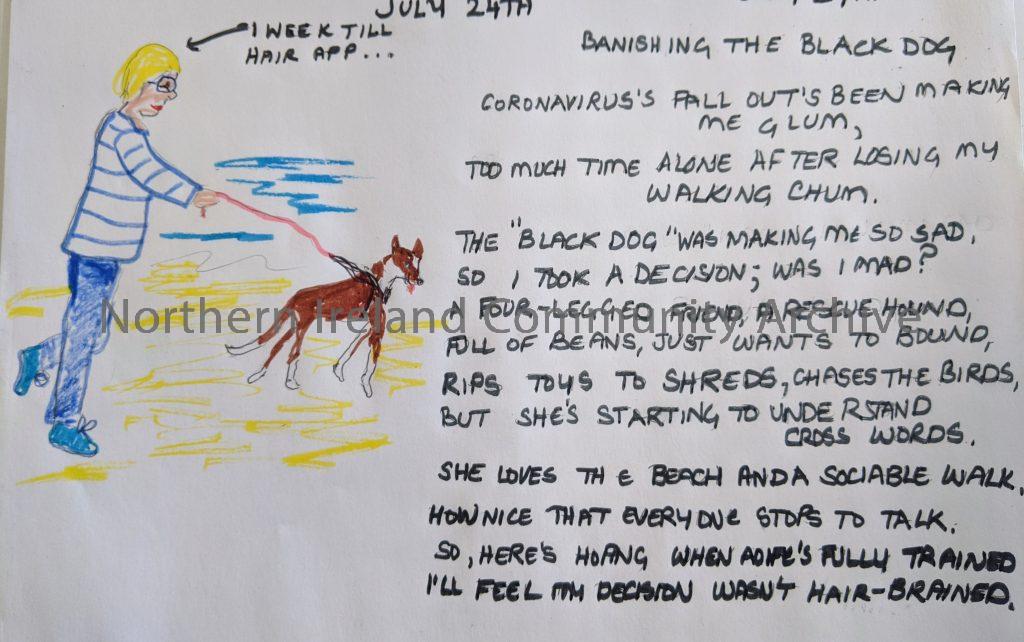 JULY 24TH
1 WEEK TILL
HAIR APP...
BANISHING THE BLACK DOG
CORONAVIRUS'S FALL OUT'S BEEN MAKING
ME GLUM,
TOO MUCH TIME ALONE AFTER LOSING MY
WALKING CHUM.
THE "BLACK DOG" WAS MAKING ME SO SAD,
SO I TOOK A DECISION; WAS I MAD?
A FOUR-LEGGED FRIEND, A RESCUE HOUND,
Northern Ireland Community Archive
FULL OF BEANS, JUST WANTS TO BOUND,
RIPS TOYS TO SHREDS, CHASES THE BIRDS,
BUT SHE'S STARTING TO UNDERSTAND
CROSS WORDS.
SHE LOVES THE BEACH AND A SOCIABLE WALK.
HOW NICE THAT EVERYONE STOPS TO TALK.
SO, HERE'S HOPING WHEN AOIFE'S FULLY TRAINED
I'LL FEEL MY DECISION WASN'T HAIR-BRAINED.